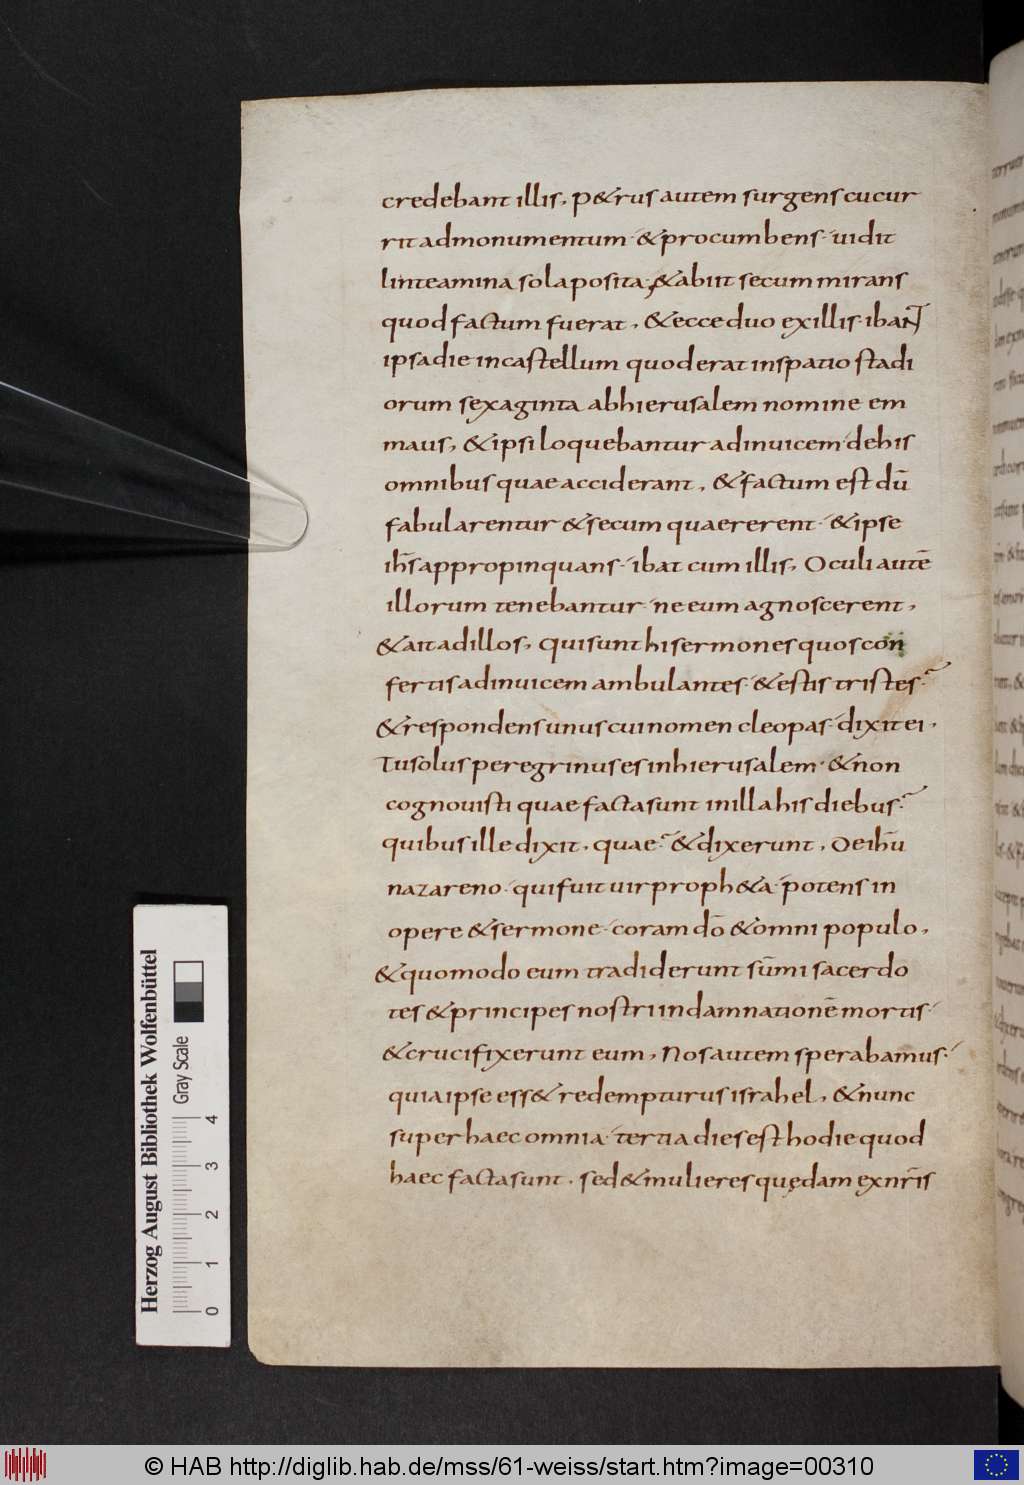 credebant illis, p&rus autem surgens cucur
rit admonumentum· &procumbens· uidit
linteamina sola posita· &abiit secum mirans
quod factum fuerat, &ecce duo exillis· ibant
ipsa die incastellum quod erat inspatio stadi
orum sexaginta abhierusalem nomine em
maus, &ipsi loquebantur adinuicem· dehis
omnibus quae acciderant, &factum est dū
fabularentur &secum quaererent· &ipse
ih̄s appropinquans· ibat cum illis, Oculi autē
illorum tenebantur· ne eum agnoscerent,
&ait adillos, qui sunt hi sermones quos con
fertis adinuicem ambulantes· &estis tristes·
&respondens unus cui nomen cleopas· dixit ei,
Tu solus peregrinus es inhierusalem· &non
cognouisti quae facta sunt inilla his diebus·
quibus ille dixit, quae· &dixerunt, De ih̄u
nazareno· qui fuit uir proph&a· potens in
opere &sermone· coram dō &omni populo,
&quomodo eum tradiderunt sūmi sacerdo
tes &principes nostri indamnationē mortis·
&crucifixerunt eum, Nos autem sperabamus·
quia ipse ess& redempturus israhel, &nunc
super haec omnia· tertia dies est hodie quod
haec facta sunt, sed &mulieres quędam exnr̄is
Herzog August Bibliothek Wolfenbüttel
Gray Scale
0 1 2 3 4
© HAB http://diglib.hab.de/mss/61-weiss/start.htm?image=00310